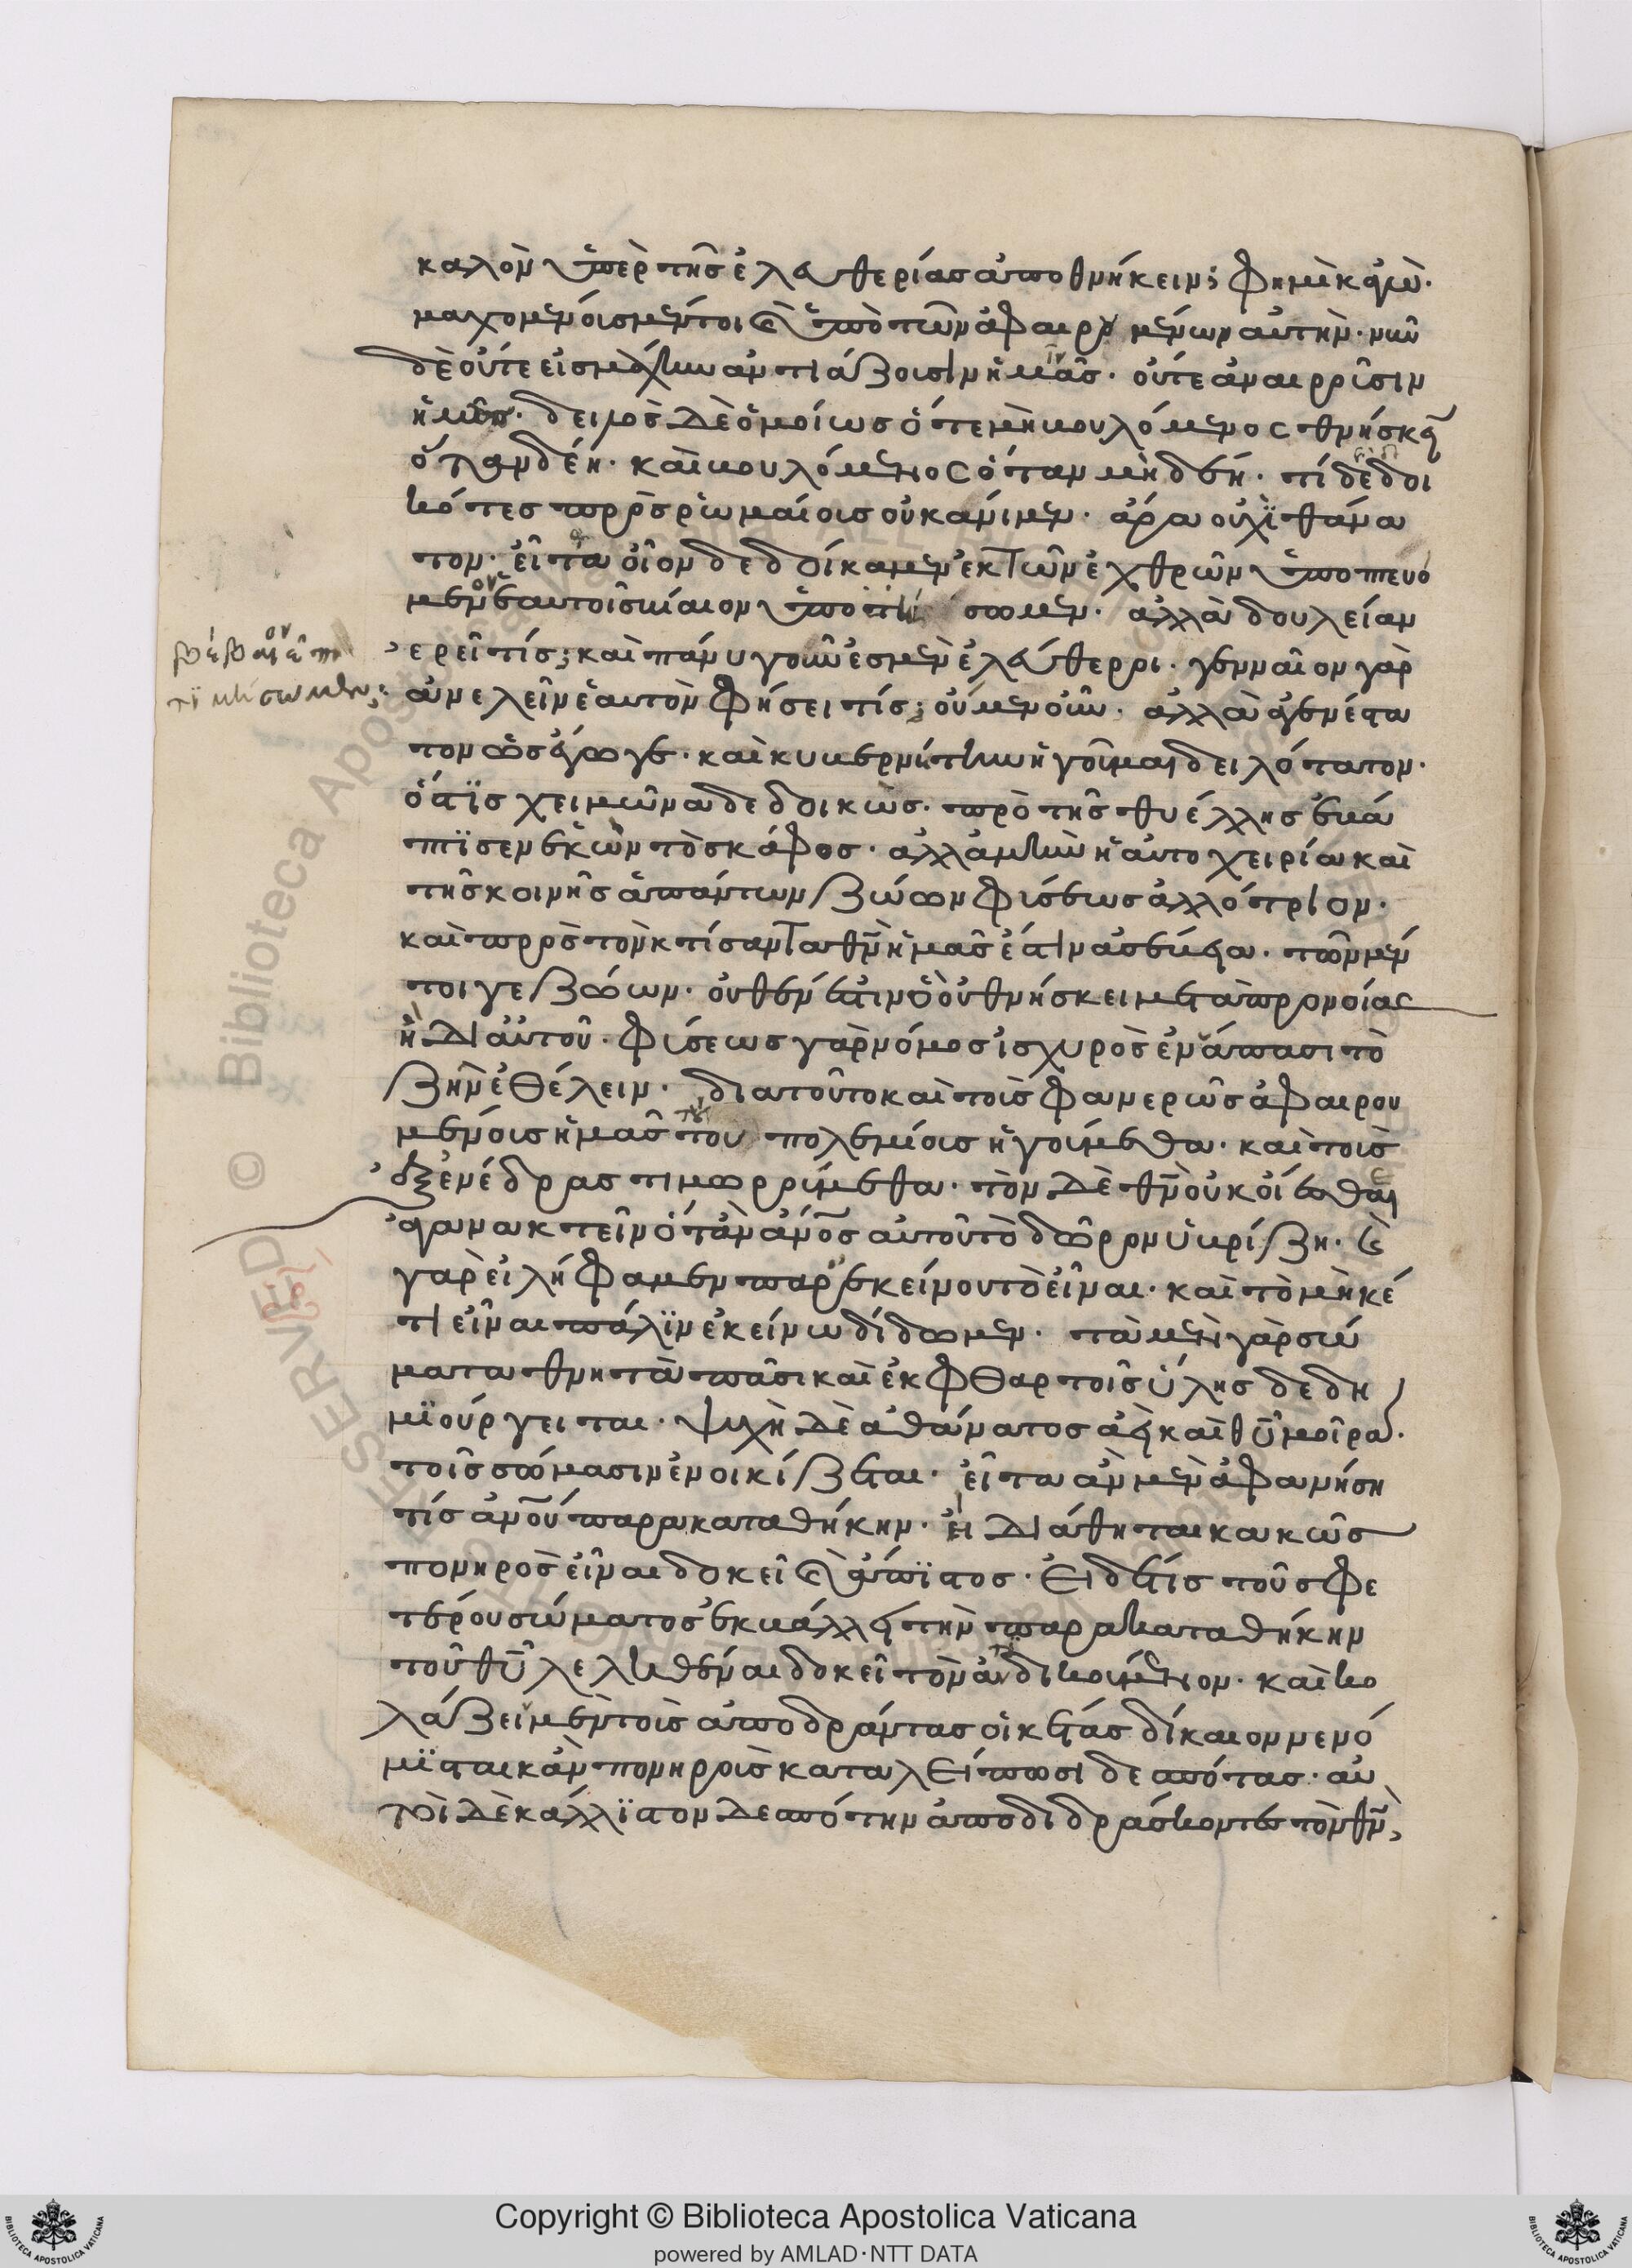 καλὸν ὑπὲρ τῆς ἐλευθερίας ἀποθνήκειν; φημὶ κἀγὼ·
μαχομένοις μέντοι καὶ ὑπὸ τῶν ἀφαιρουμένων αὐτὴν· νῦν
δὲ οὔτε εἰς μάχην ἀντιάζουσιν ἡμῖν ἡμᾶς· οὔτε ἀναιροῦσιν
ἡμᾶς· δειλὸς δὲ ὁμοίως ὅτε μὴ βουλόμενος θνήσκειν
ὅταν δέη· καὶ βουλόμενος ὅταν μὴ δέη· τί δεδοι
κότες πρὸς ῥωμαίοις οὐκ ἄνιμεν· ἆρα οὐχὶ θάνα
τον· εἶτα οἷον δεδοίκαμεν ἐκ τῶν ἐχθρῶν ὑποπτευό
μενον ἑαυτοῖς βίαιον σωμεν· ἀλλὰ δουλείαν
βέβαιον ἐπι
ἐρεῖ τίς; καὶ πάνυ γοῦν ἐσμὲν ἐλεύθεροι· γενναῖον γὰρ
τιμήσωμεν;
ἀνελεῖν ἑαυτὸν φήσει τίς; οὐμενοῦν· ἀλλὰ ἀγενέστα
τον ὡς ἔγωγε· καὶ κυβερνήτην ἡγοῦμαι δειλότατον·
ὅστις χειμῶνα δεδοικὼς· πρὸ τῆς θυέλλης ἐβά
πτισεν ἑκὼν τὸ σκάφος· ἀλλὰ μὴν ἡ αὐτοχειρία καὶ
τῆς κοινῆς ἁπάντων ζώων φύσεως ἀλλότριον·
καὶ πρὸς τὸν κτίσαντα θν ἡμᾶς ἐστὶν ἀσέβεια· τῶν μέν
τοι γε ζώων· οὐθέν ἐστιν ὃ θνήσκει μετὰ προνοίας
ἢ δι αὐτοῦ· φύσεως γὰρ νόμος ἰσχυρὸς ἐν ἅπασι τὸ
ζῆν ἐθέλειν· διατοῦτο καὶ τοὺς φανερῶς ἀφαιρου
μένοις ἡμᾶς τού πολεμίοις ἡγούμεθα· καὶ τοὺς
ἐξ ἐνέδρας τιμωρούμεθα· τὸν δὲ θν οὐκ οἴεσθαι
ἀγανακτεῖν ὅταν ἄνος αὐτοῦ τὸ δῶρον ὑβρίζη· καὶ
γὰρ εἰλήφαμεν παρ ἐκείνου τὸ εἶναι· καὶ τὸ μηκέ
τι εἶναι πάλιν ἐκείνω δίδωμεν· τὰ μὲν γὰρ σώ
ματα θνητὰ πᾶσι καὶ ἐκ φθαρτοῖς ὕλης δεδη
μιούργειται· ψυχὴ δὲ ἀθάνατος ἀεὶ καὶ θῦ μοῖρα·
τοῖς σώμασιν ἐνοικίζεται· εἶτα ἂν μὲν ἀφανήση
τίς ἀνοῦ παρακαταθήκην· ἢ διάθηται κακῶς
πονηρὸς εἶναι δοκεῖ καὶ ἄπιστος· εἰ δέ τίς τοῦ σφε
τέρου σώματος ἐκβάλλει τὴν παρακαταθήκην
τοῦ θῦ λεληθέναι δοκεῖ τὸν ἀδικούμενον· καὶ κο
λάζειν μὲν τοὺς ἀποδράντας οἰκέτας δίκαιον νενό
μισται κἂν πονηροὺς καταλείπωσι δεσπότας· αὐ
τοὶ δὲ κάλλιστον δεσπότην ἀποδιδράσκοντες τὸν θν,